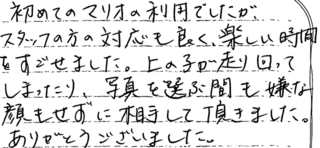 初めてのマリオの利用でしたが、
スタッフの方の対応も良く、楽しい時間
をすごせました。上の子が走り回って
しまったり、写真を選ぶ間も嫌な
顔もせずに相手して頂きました。
ありがとうございました。